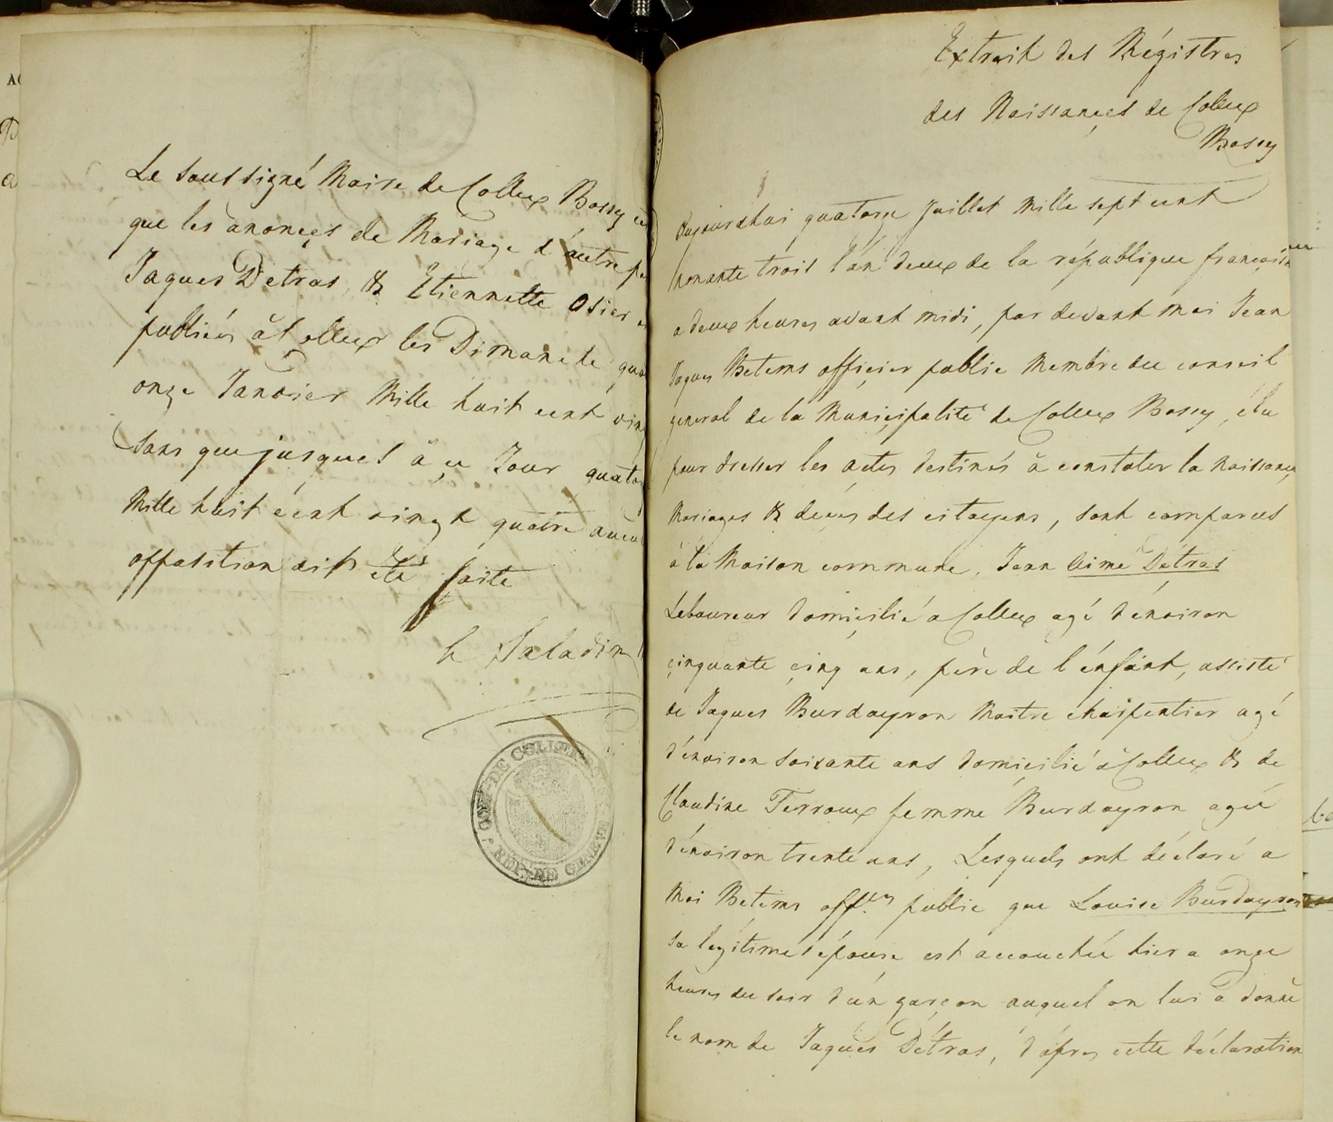 Le Soussigné Maire de Collex Bossy
que les anonçes de Mariage d'éntre
Jaques Detras & Etiennette Osier
publiées à Collex les Dimanche
onze Janvier Mille huit cent
Sans que jusques à ce Jour
Mille huit cent vingt quatre
oppasition ait été faite
Saladin
COM: DE COLLEX
GENEVE
Extrait des Régistres
des Naissançes de Collex
Bossy
Aujourdhui quatorze Juillet Mille sept cent
nonante trois l'an deux de la république françoise
a deux heures avant midi, par devant moi Jean
Jaques Betems offiçier public Membre du conseil
general de la Muniçipalité de Collex Bossy, élu
pour dresser les actes destinés à constater la Naissance,
Mariages & décès des citoyens, sont comparus
à la Maison commune, Jean Aimé Détras
Laboureur domiçilié a Collex agé d'énviron
çinquante çinq ans, père de l'énfant, assisté
de Jaques Burdayron Maitre charpentier agé
d'énviron soixante ans domiçilié à Collex & de
Claudine Terroux femme Burdayron agée
d'énviron trente ans, Lesquels ont déclaré a
Moi Betems off.er public que Louise Burdayron
sa légitime épouse est accouchée hier a onze
heures du soir d'un garçon auquel on lui a donné
le nom de Jaques Détras, d'àpres cette déclaration